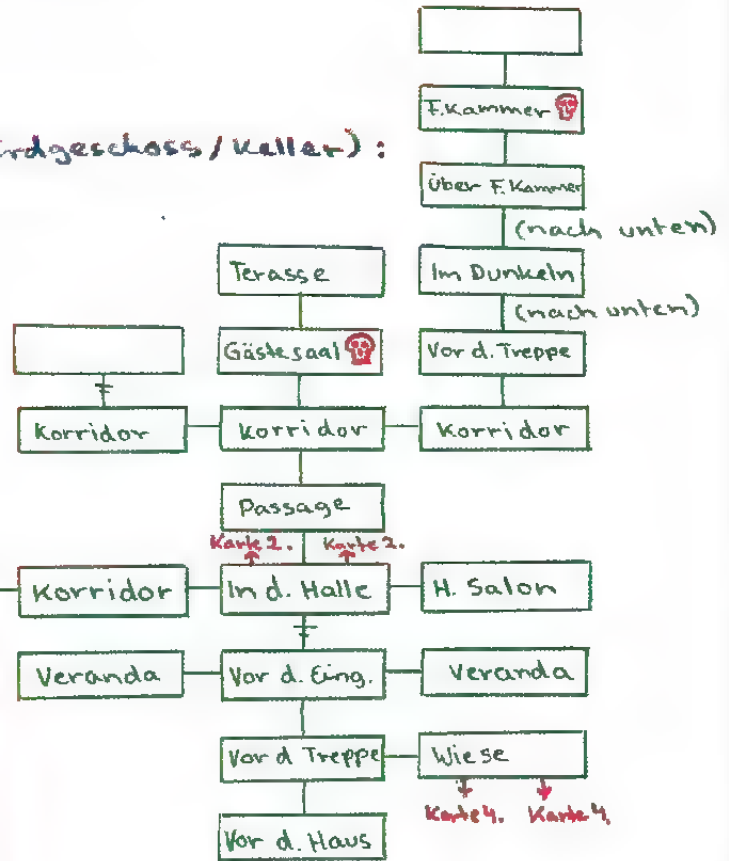 F.Kammer
Erdgeschoss / Keller):
Über F. Kammer
(nach unten)
Terasse
Im Dunkeln
(nach unten)
Gästesaal
Vor d. Treppe
Korridor
Korridor
Korridor
Passage
Karte 2. Karte 2.
Korridor
In d. Halle
H. Salon
Veranda
Vor d. Eing.
Veranda
Vor d Treppe
Wiese
Karte 4. Karte 4.
Vor d. Haus